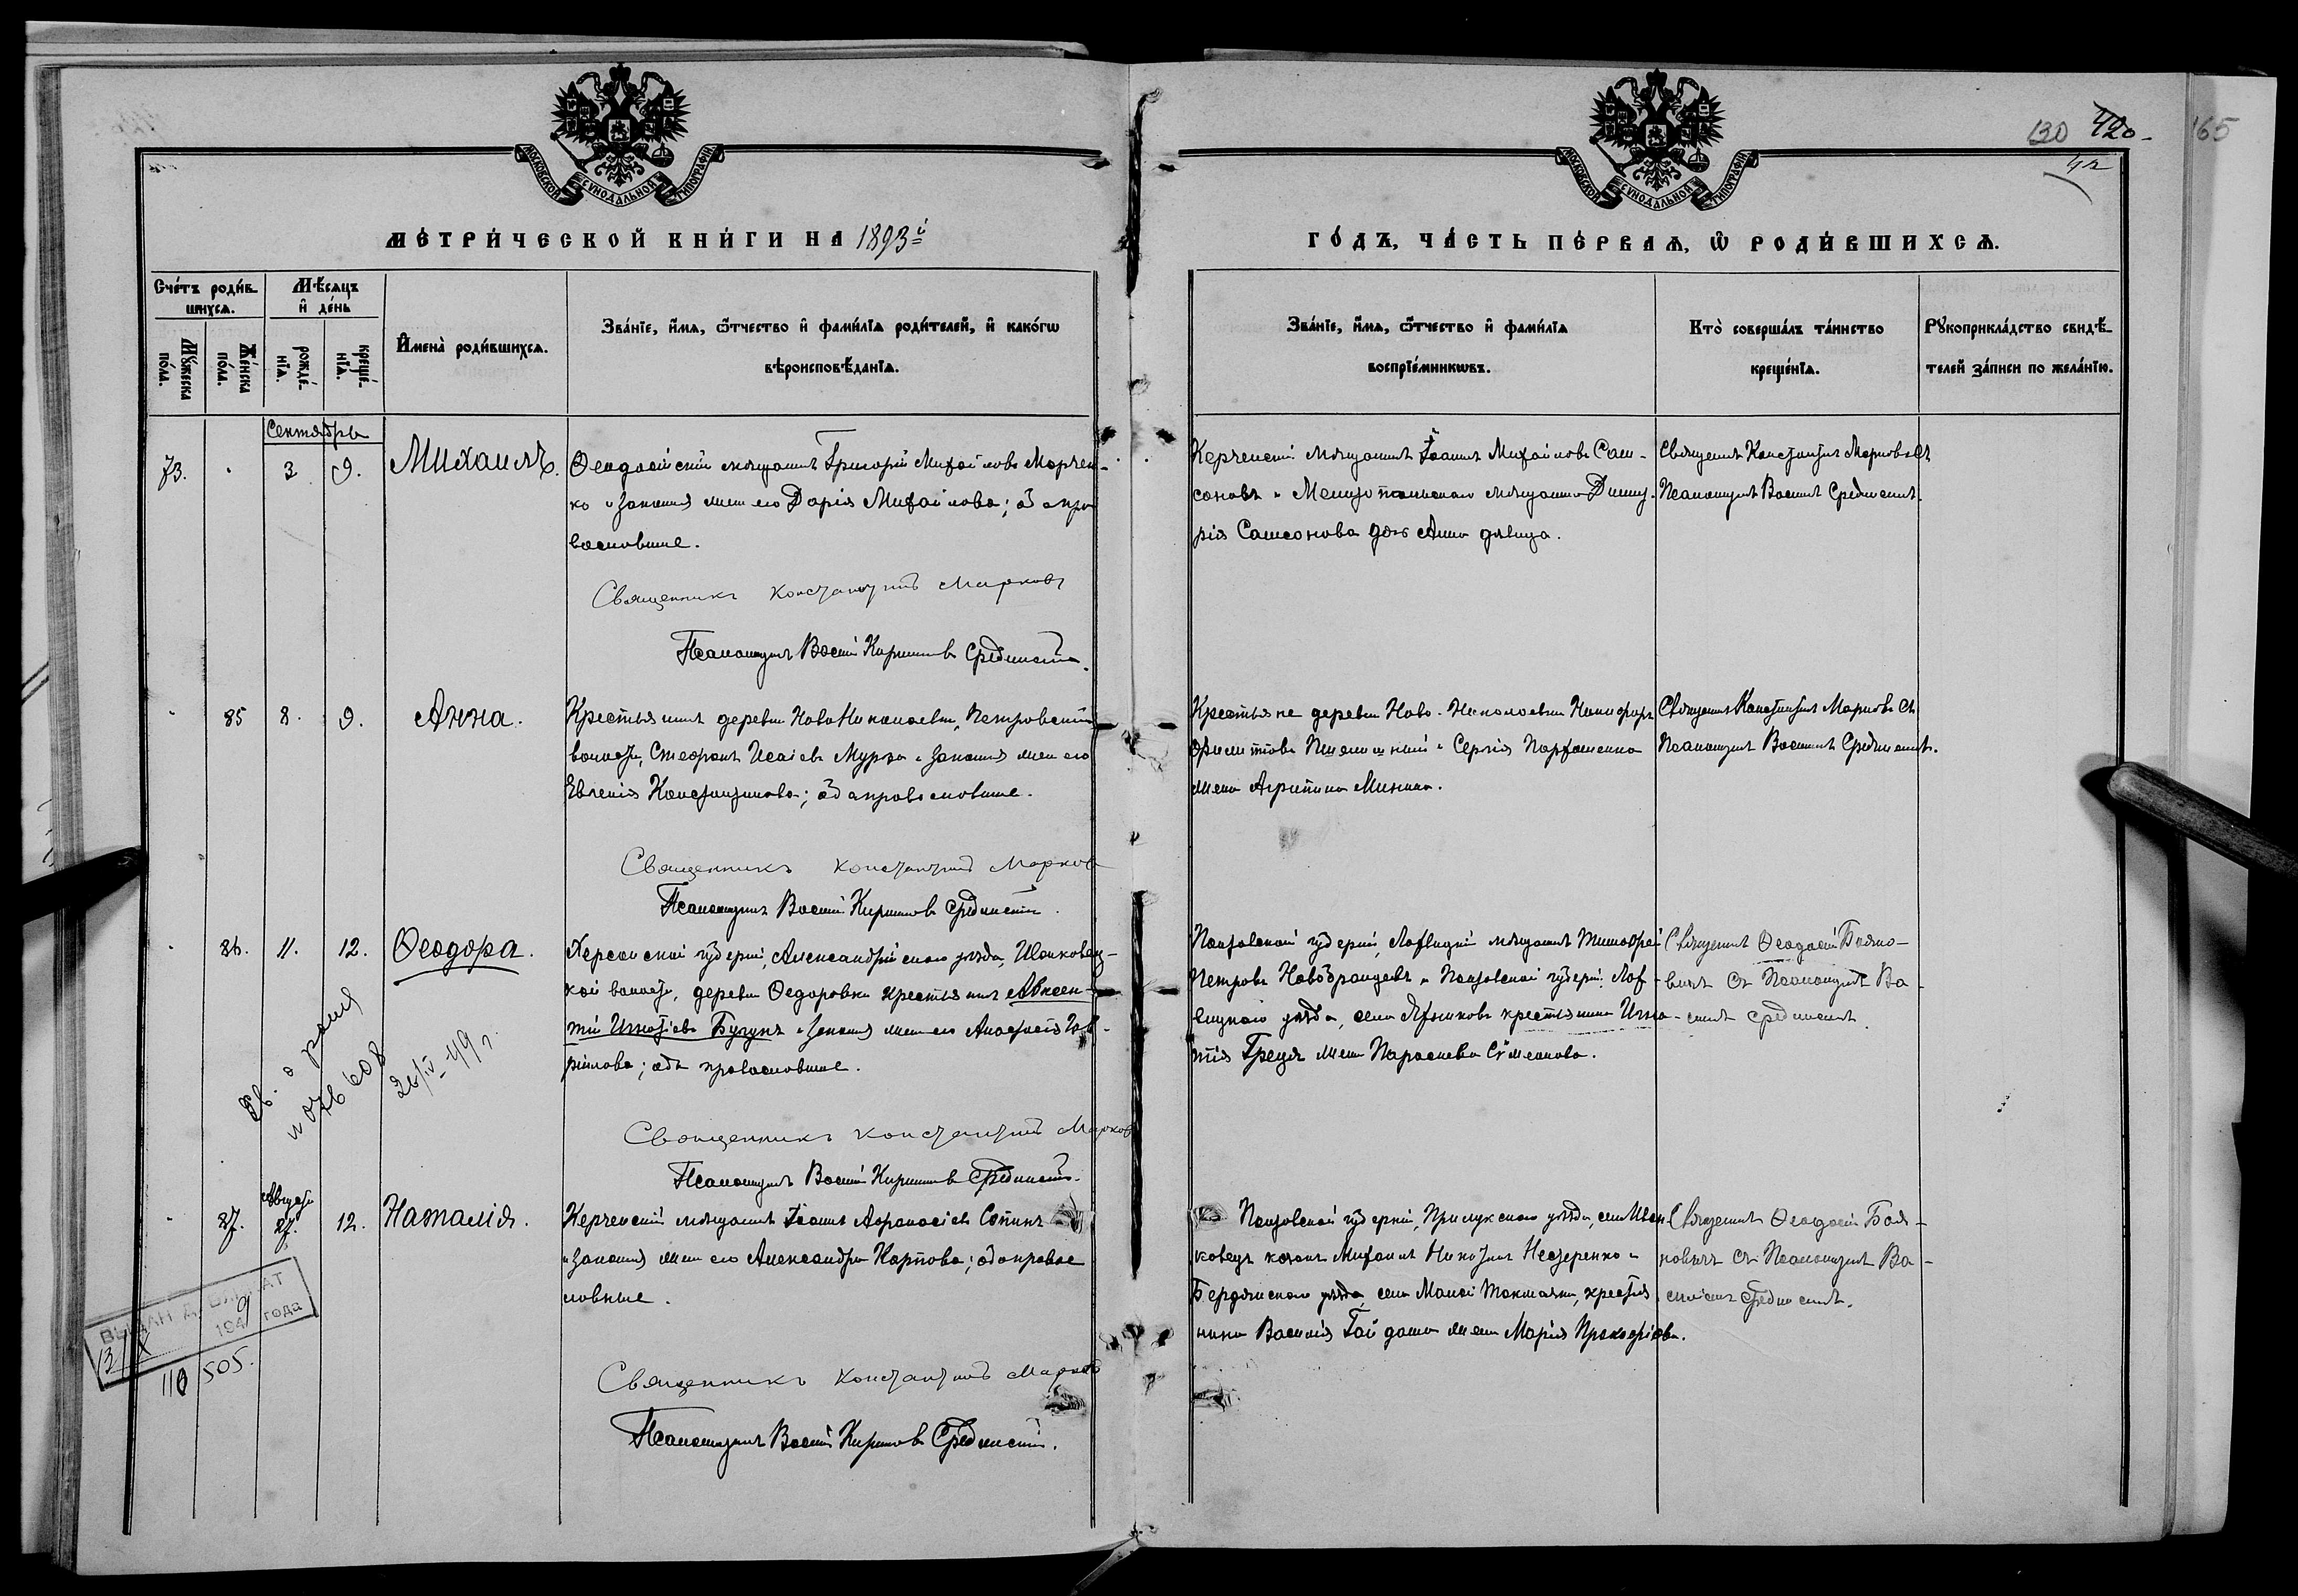 130 420- 165
42
МОСКОВСКОЙ СѴНОДАЛЬНОЙ ТИПОГРАФІИ
МОСКОВСКОЙ СѴНОДАЛЬНОЙ ТИПОГРАФІИ
МЕТРИЧЕСКОЙ КНИГИ НА 1893й
ГОДЪ, ЧАСТЬ ПЕРВАЯ, Ѡ РОДИВШИХСЯ.
Счетъ родив-
шихся.
Мѣсяцъ
и день
Мужеска
пола.
Женска
пола.
рожде-
нія.
креще-
нія.
Имена родившихся.
Званіе, имя, ѿтчество и фамилія родителей, и какогѡ
вѣроисповѣданія.
Званіе, имя, ѿтчество и фамилія
воспріемникѡвъ.
Кто совершалъ таинство
крещенія.
Рукоприкладство свидѣ-
телей записи по желанію.
Сентябрь
73. 3 9. Михаилъ.
Ѳеодосійскій мѣщанинъ Григорій Михайловъ Марчен-
ко и законная жена его Дарія Михайлова; оба пра
вославные.
Священникъ Константинъ Марковъ
Псаломщикъ Василій Кирилловъ Срединскій.
Керченскій мѣщанинъ Іоаннъ Михайловъ Сам-
соновъ и Мелитопольскаго мѣщанина Димит-
рія Самсонова дочь Анна дѣвица.
Священникъ Константинъ Марковъ съ
Псаломщикомъ Василіемъ Срединскимъ.
85 8. 9. Анна.
Крестьянинъ деревни Ново Николаевки, Петровской
волости, Стефанъ Исаіевъ Мурза и законная жена его
Евгенія Константинова; оба православные.
Священникъ Константинъ Марковъ
Псаломщикъ Василій Кирилловъ Срединскій.
Крестьяне деревни Ново-Николаевки Никифоръ
и Сергія Парфоменко
жена Агрипина Минина.
Священникъ Константинъ Марковъ съ
Псаломщикомъ Василіемъ Срединскимъ.
86. 11. 12. Ѳеодора.
Херсонской губерніи, Александрійскаго уѣзда, Ивановец-
кой волости, деревни Ѳедоровки крестьянинъ Авксен-
тій Игнатіевъ Бугунъ и законная жена его Анастасія Гав-
рилова; оба православные.
Священникъ Константинъ Марковъ
Псаломщикъ Василій Кирилловъ Срединскій.
Полтавской губерніи, Лохвицкій мѣщанинъ Тимофей
Петровъ Новобранцевъ и Полтавской губерніи Лох-
вицкаго уѣзда, села крестьянина Игна-
тія Греця жена Параскева Сѵмеонова.
Священникъ Ѳеодосій Бояно-
вичъ съ Псаломщикомъ Ва-
силіемъ Срединскимъ.
26/IV-49 г.
Августа
87. 27. 12. Наталія.
Керченскій мѣщанинъ Іоаннъ Аѳанасіевъ Сотинъ
и законная жена его Александра Карпова; оба правос
лавные.
Священникъ Константинъ Марковъ
Псаломщикъ Василій Кирилловъ Срединскій.
Полтавской губерніи, Прилукскаго уѣзда, села Иван
ковецъ козакъ Михаилъ Никитинъ Нестеренко и
Бердянскаго уѣзда, села Малой Токмачки, крестья
нина Василія Гайдаша жена Марія Прокофіева.
Священникъ Ѳеодосій Боя-
новичъ съ Псаломщикомъ Ва-
силіемъ Срединскимъ.
13/X 1949 года
110 505.